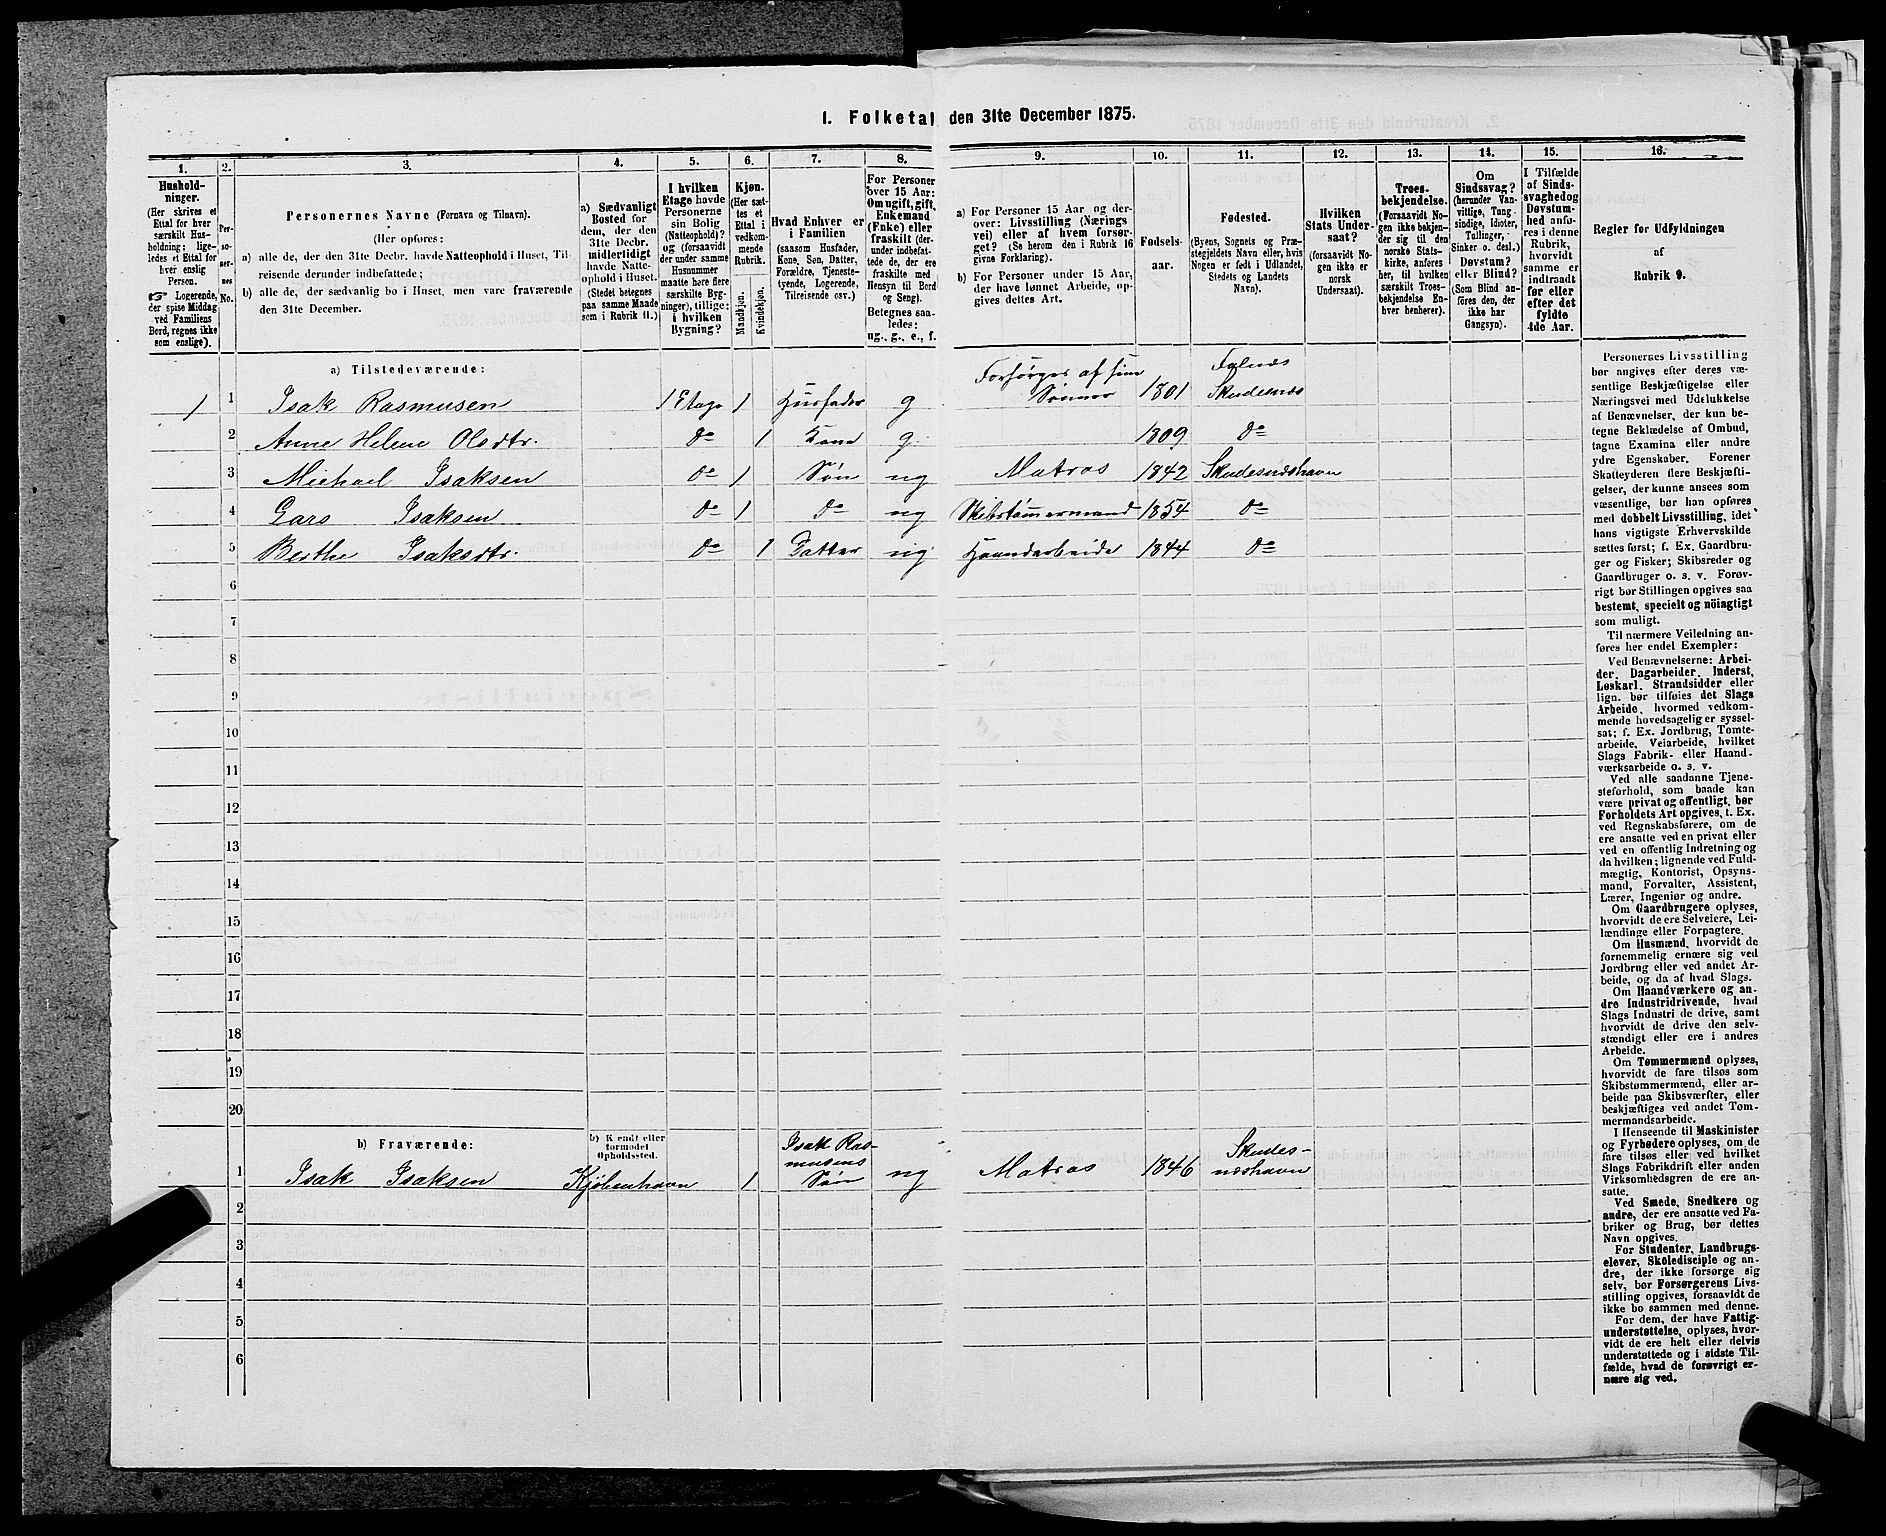 1. Folketal den 31te December 1875.
1. 2. 3. 4. 5. 6. 7. 8. 9. 10. 11. 12. 13. 14. 15. 16.
Hushold-
ninger.
(Her skrives et
Ettal for hver
særskilt Hus-
holdning; lige-
ledes et Ettal for
hver enslig
Person.
☞ Logerende,
der spise Middag
ved Familiens
Bord, regnes ikke
som enslige).
Per-
so-
ner-
nes
No.
Personernes Navne (Fornavn og Tilnavn).
(Her opføres:
a) alle de, der den 31te Decbr. havde Natteophold i Huset, Til-
reisende derunder indbefattede;
b) alle de, der sædvanlig bo i Huset, men vare fraværende
den 31te December.
a) Sædvanligt
Bosted for
dem, der den
31te Decbr.
midlertidigt
havde Natte-
ophold i Huset.
(Stedet betegnes
paa samme Maade
som i Rubrik 11.)
I hvilken
Etage havde
Personerne
sin Bolig
(Natteophold)?
og (forsaavidt
der under samme
Husnummer
maatte høre flere
særskilte Byg-
ninger), tillige:
i hvilken
Bygning?
Kjøn.
(Her sæt-
tes et
Ettal i
vedkom-
mende
Rubrik.
Mandkjøn.
Kvindekjøn.
Hvad Enhver er
i Familien
(saasom Husfader,
Kone, Søn, Datter,
Forældre, Tjeneste-
tyende, Logerende,
Tilreisende osv.)
For Personer
over 15 Aar:
Om ugift, gift,
Enkemand
(Enke) eller
fraskilt (der-
under indbefat-
tede de, der ere
fraskilte med
Hensyn til Bord
og Seng).
Betegnes saa-
ledes:
ug., g., e., f.
a) For Personer 15 Aar og der-
over: Livsstilling (Nærings
vei) eller af hvem forsør-
get? (Se herom den i Rubrik 16
givne Forklaring).
b) For Personer under 15 Aar,
der have lønnet Arbeide, op-
gives dettes Art.
Fødsels-
aar.
Fødested.
(Byens, Sognets og Præ-
stegjeldets Navn eller, hvis
Nogen er født i Udlandet,
Stedets og Landets
Navn).
Hvilken
Stats Under-
saat?
(forsaavidt No-
gen ikke er
norsk
Undersaat).
Troes-
bekjendelse.
(Forsaavidt No-
gen ikke bekjen-
der sig til den
norske Stats-
kirke, anføres
her, til hvilken
særskilt Troes-
bekjendelse En-
hver henhører).
Om
Sindssvag?
(herunder Van-
vittige, Tung-
sindige, Idioter,
Tullinger,
Sinker o. desl.)
Døvstum?
eller Blind?
(Som Blind an-
føres den, der
ikke har
Gangsyn).
I Tilfælde
af Sinds-
svaghed og
Døvstum-
hed anfø-
res i denne
Rubrik,
hvorvidt
samme er
indtraadt
før eller
efter det
fyldte
4de Aar.
Regler for Udfyldningen
af
Rubrik 9.
a) Tilstedeværende:
1 1 Isak Rasmusen 1 Etage 1 Husfader g Forsörges af sine Sönner 1801 Falnæs Skudesnæs
2 Anne Helene Olsdtr. do 1 Kone g. 1809 do
3 Michael Isaksen do 1 Søn ug Matros 1842 Skudesnæshavn
4 Lars Isaksen do 1 do ug Skibstømermand 1854 do
5 Berthe Isaksdtr. do 1 Datter ug Haandarbeide 1844 do
6
7
8
9
10
11
12
13
14
15
16
17
18
19
20
b) Fraværende:
b) Kendt eller
formodet
Opholdssted.
1 Isak Isaksen Kjöbenhavn 1 Isak Ras-
musens
Søn ug Matros 1846 Skudes-
næshavn
2
3
4
5
6
Personernes Livsstilling
bør angives efter deres væ-
sentlige Beskjæftigelse eller
Næringsvei med Udelukkelse
af Benævnelser, der kun be-
tegne Beklædelse af Ombud,
tagne Examina eller andre
ydre Egenskaber. Forener
Skatteyderen flere Beskjæfti-
gelser, der kunne ansees som
væsentlige, bør han opføres
med dobbelt Livsstilling, idet
hans vigtigste Erhvervskilde
sættes først; f. Ex. Gaardbru-
ger og Fisker; Skibsreder og
Gaardbruger o. s. v. Forøv-
rigt bør Stillingen opgives saa
bestemt, specielt og nöiagtigt
som muligt.
Til nærmere Veiledning an-
føres her endel Exempler:
Ved Benævnelserne: Arbei-
der, Dagarbeider, Inderst,
Løskarl, Strandsidder eller
lign. bør tilføies det Slags
Arbeide, hvormed vedkom-
mende hovedsagelig er syssel-
sat; f. Ex. Jordbrug, Tomte-
arbeide, Veiarbeide, hvilket
Slags Fabrik- eller Haand-
værksarbeide o. s. v.
Ved alle saadanne Tjene-
steforhold, som baade kan
være privat og offentligt, bør
Forholdets Art opgives, t. Ex.
ved Regnskabsførere, om de
ere ansatte ved en privat eller
ved en offentlig Indretning og
da hvilken; lignende ved Fuld-
mægtig, Kontorist, Opsyns-
mand, Forvalter, Assistent,
Lærer, Ingeniør og andre.
Om Gaardbrugere oplyses,
hvorvidt de ere Selveiere, Lei-
lændinge eller Forpagtere.
Om Husmænd, hvorvidt de
fornemmelig ernære sig ved
Jordbrug eller ved andet Ar-
beide, og da af hvad Slags.
Om Haandværkere og an-
dre Industridrivende, hvad
Slags Industri de drive, samt
hvorvidt de drive den selv-
stændigt eller ere i andres
Arbeide.
Om Tømmermænd oplyses,
hvorvidt de fare tilsøs som
Skibstømmermænd, eller ar-
beide paa Skibsværfter, eller
beskjæftiges ved andet Tøm-
mermandsarbeide.
I Henseende til Maskinister
og Fyrbødere oplyses, om de
fare tilsøs eller ved hvilket
Slags Fabrikdrift eller anden
Virksomhedsgren de ere an-
satte.
Ved Smede, Snedkere og
andre, der ere ansatte ved Fa-
briker og Brug, bør dettes
Navn opgives.
For Studenter, Landbrugs-
elever, Skoledisciple og an-
dre, der ikke forsørge sig
selv, bør Forsørgerens Livs-
stilling opgives, forsaavidt de
ikke bo sammen med denne.
For dem, der have Fattig-
understøttelse, oplyses, hvor-
vidt de ere helt eller delvis
understøttede og i sidste Til-
fælde, hvad de forøvrigt er-
nære sig ved.